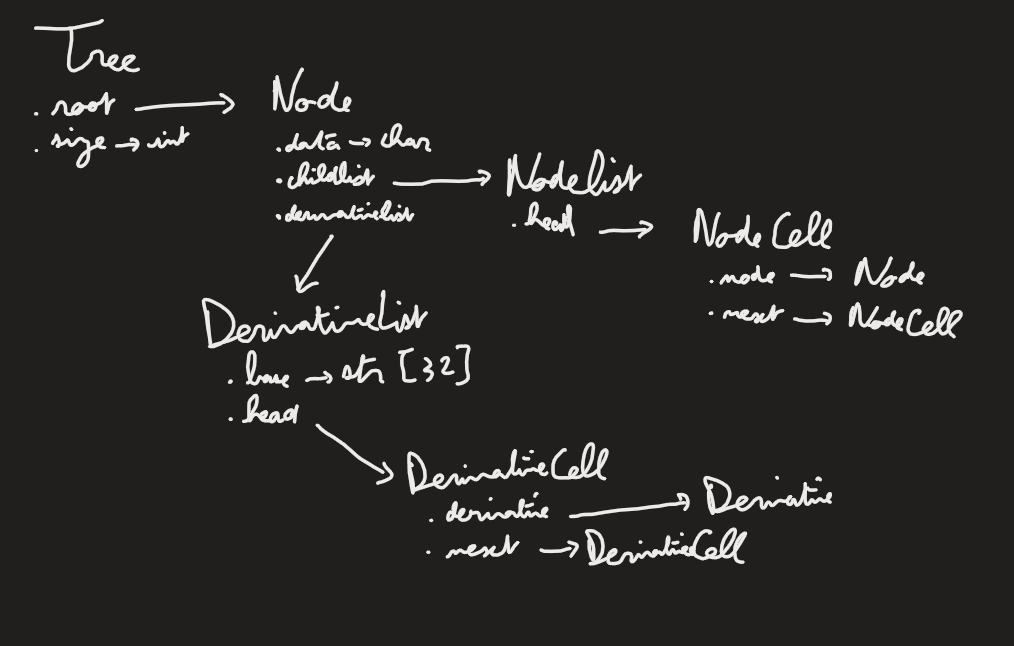 Tree
. root → Node
. size → int
. data → char
. childlist → Nodelist
. derivativelist
. head → NodeCell
. node → Node
. next → NodeCell
DerivativeList
. base → str [32]
. head
DerivativeCell
. derivative → Derivative
. next → DerivativeCell